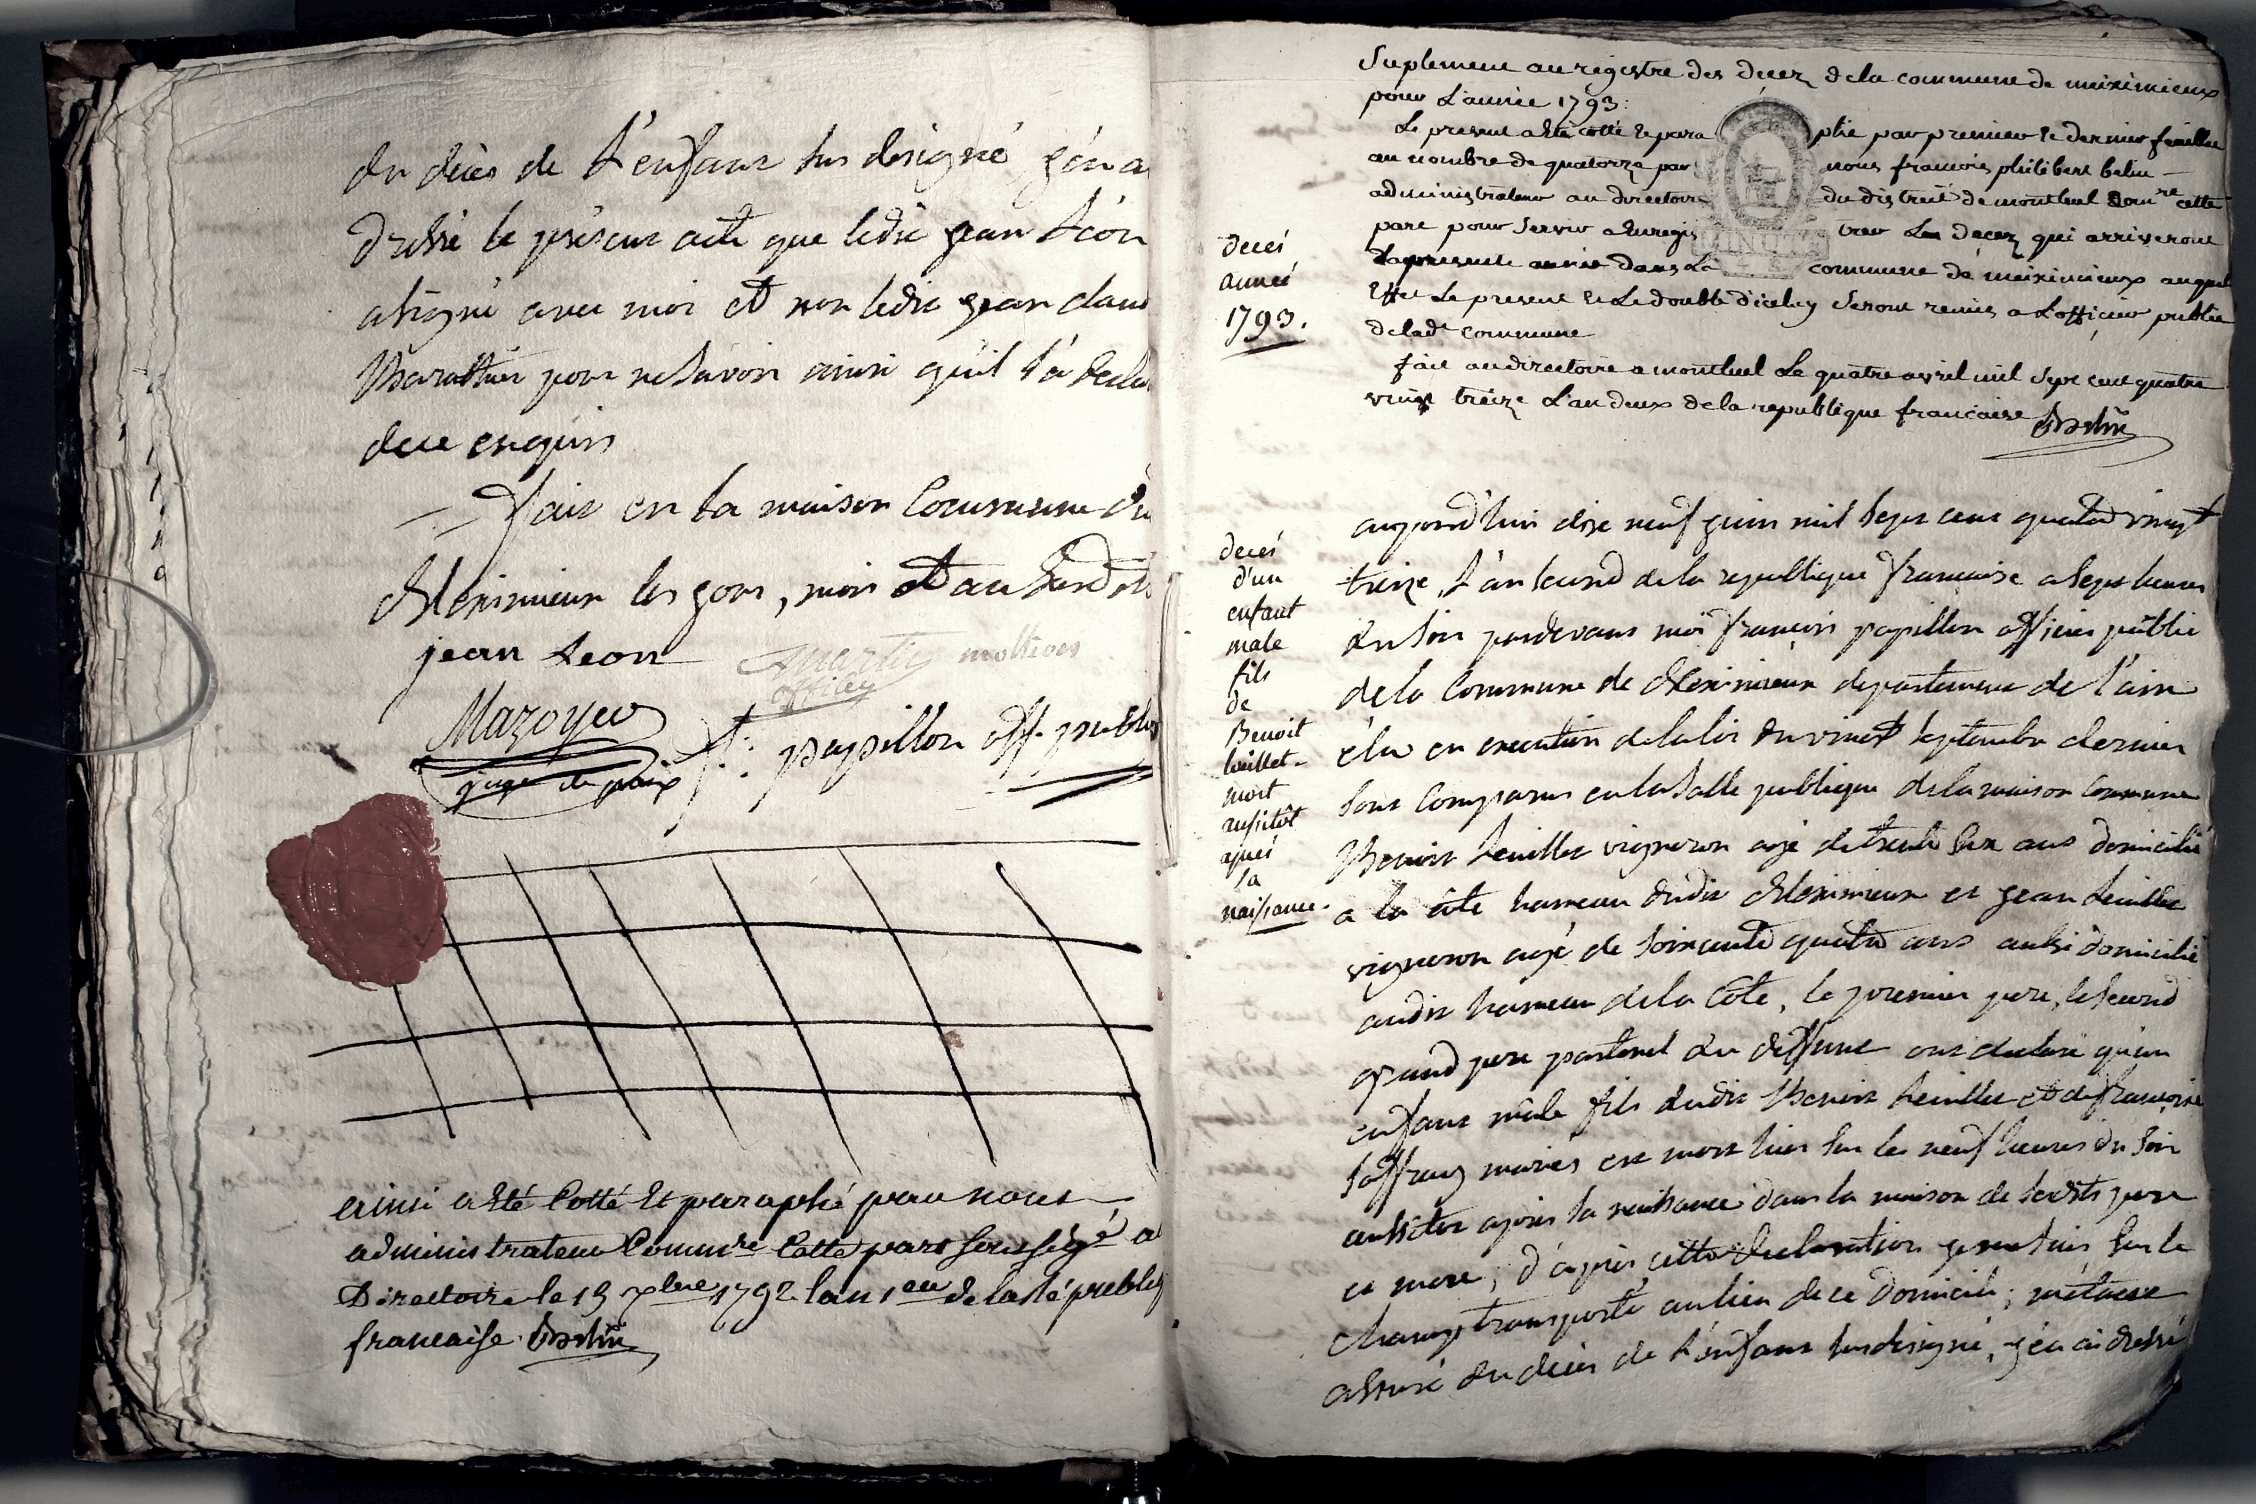 du décès de L'enfant sus designé, j'en a
dressé le présent acte que ledit jean Léon
a signé avec moi et non ledit jean claud
pour ne savoir ainsi qu'il l'a declar
dece enquis
fait en la maison Commune du
Meximieux les jour, mois et an
jean Leon
Martin
officier
Mazoyer
juge de paix
f: papillon off. public
ainsi a Eté Cotté Et paraphé par nous
administrateur Commre Cette part soussigné au
Directoire le 19 xbre 1792 lan 1er de la République
francaise. Belin
Suplement au registre des decez de la commune de meximieux
pour L'année 1793:
Le present a Eté cotté Et paraphé par premier Et dernier feuillet
au nombre de quatorze par nous francois philibert belin
administrateur au directoire du district de montluel Comre cette
part pour servir a Enregistrer Les decez qui arriveront
La presente année dans La commune de meximieux auquel
Effet Le present Et Le double d'iceluy seront remis a L'officier public
de lade commune
fait au directoire a montluel Le quatre avril mil sept cent quatre
vingt treize L'an deux de la republique francaise Belin
deces
année
1793.
decés
d'un
enfant
male
fils
de
Benoit
leuillet
mort
ausitôt
aprés
sa
naissance.
aujourd'hui dix neuf juin mil sept cent quatre vingt
treize, L'an second de la republique française a sept heures
du soir pardevant moi françois papillon officier public
de la Commune de Meximieux departement de l'ain
élu en execution de la loi du vingt septembre dernier
sont Comparus en la salle publique de la maison Commune
Benoit Leuillet vigneron agé de trente six ans domicilié
a la côte hameau dudit Meximieux et jean Leuillet
vigneron agé de soixante quatre ans aussi domicilié
audit hameau de la Côte, le premier pere, le second
grand pere paternel du deffunt ont declaré qu'un
enfant mâle fils dudit Benoit Leuillet et de françoise
mariés est mort hier sur les neuf heures du soir
aussitôt après sa naissance dans la maison de sesdits pere
et mere; d'après cette declaration je me suis sur le
champ transporté au lieu de ce domicile; m'étant
assuré du décès de L'enfant susdesigné, j'en ai dressé